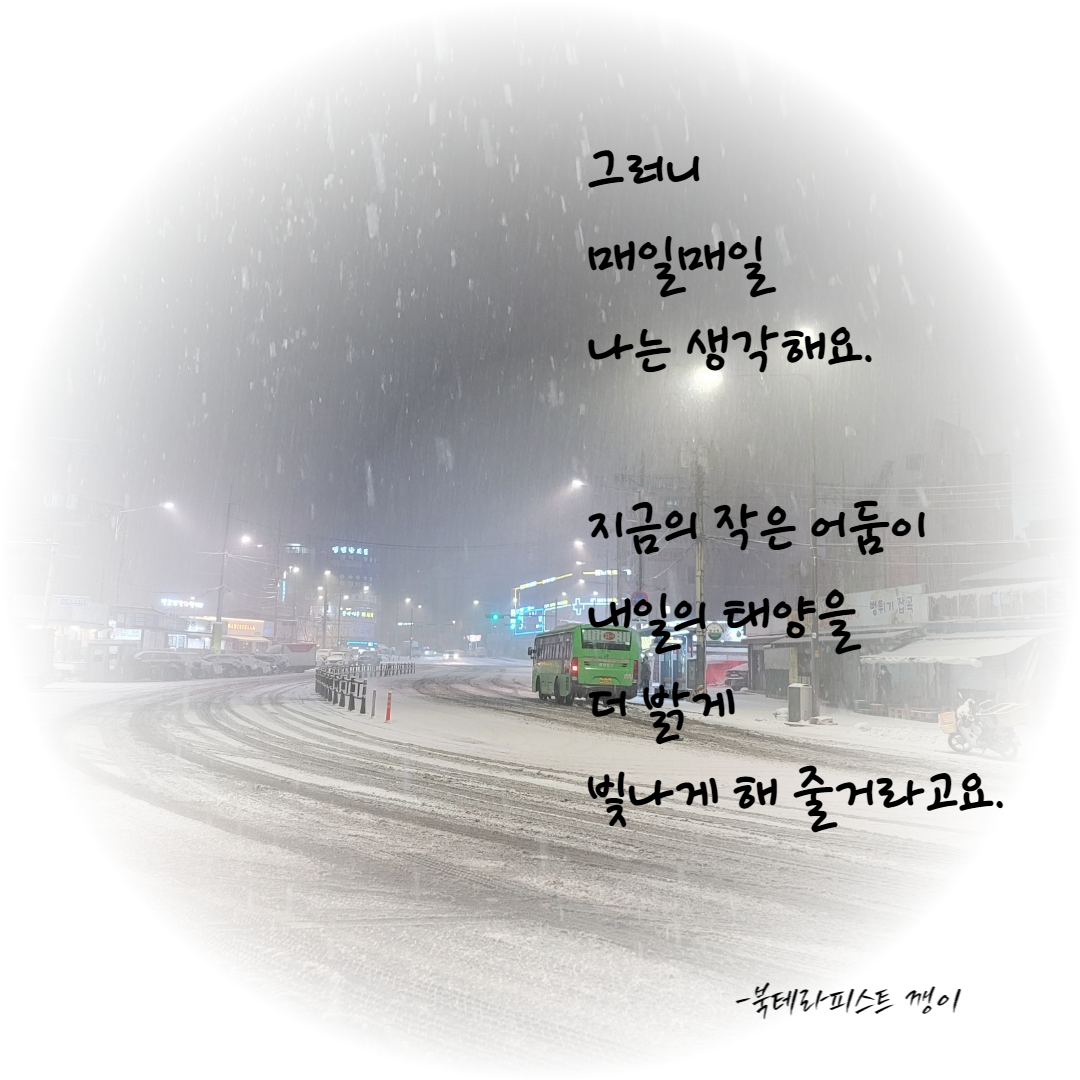 그러니
매일매일
나는 생각해요.
지금의 작은 어둠이
내일의 태양을
더 밝게
빛나게 해 줄거라고요.
뻥튀기 잡곡
-북테라피스트 깽이